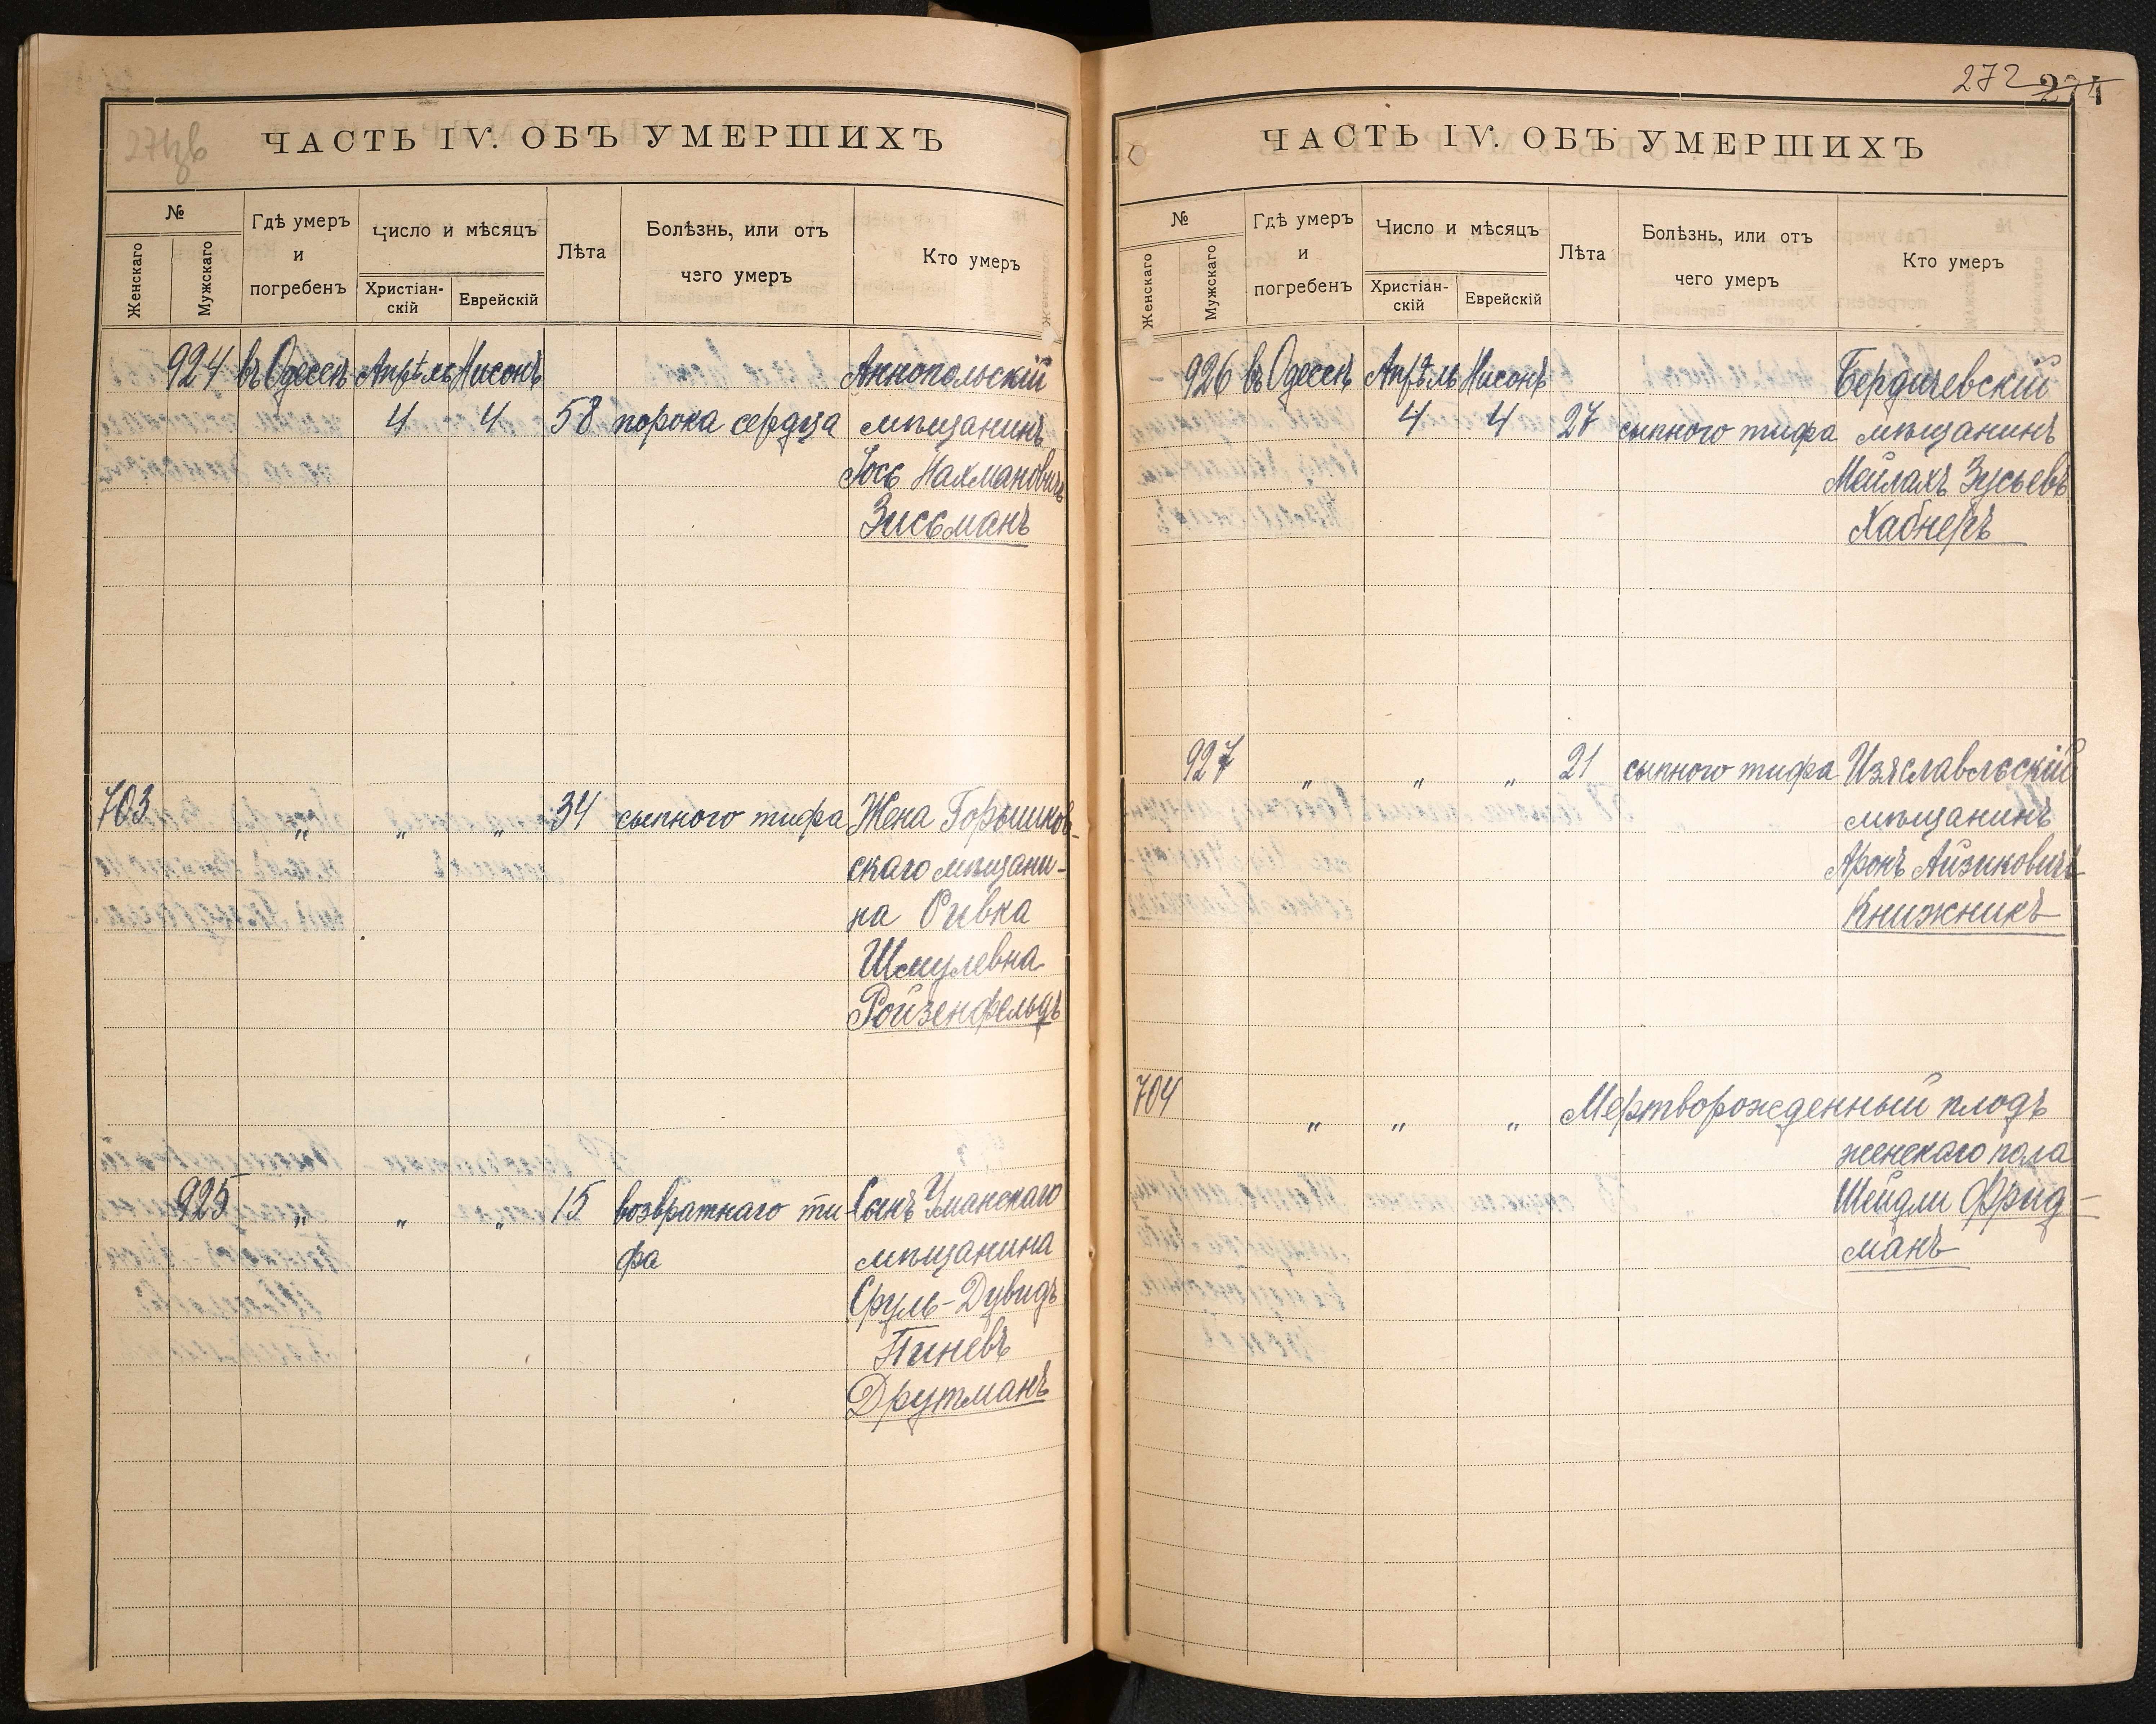 ЧАСТЬ IV. ОБЪ УМЕРШИХЪ
№
Женскаго
Мужскаго
Гдѣ умеръ
и
погребенъ
Число и мѣсяцъ
Христіан-
скій
Еврейскій
Лѣта
Болѣзнь, или отъ
чего умеръ
Кто умеръ
924 въ Одессѣ Апрѣль Нисонъ Аннопольскій
4 4 58 порока сердца мѣщанинъ
Іось Нахмановичъ
Зисьманъ
703 „ „ „ 34 сыпного тифа Жена Горышков-
скаго мѣщани-
на Ривка
Шмулевна
Ройзенфельдъ
925 „ „ „ 15 возвратнаго ти- Сынъ Уманскаго
фа мѣщанина
Сруль-Дувидъ
Пиневъ
Друтманъ
272 274
ЧАСТЬ IV. ОБЪ УМЕРШИХЪ
№
Женскаго
Мужскаго
Гдѣ умеръ
и
погребенъ
Число и мѣсяцъ
Христіан-
скій
Еврейскій
Лѣта
Болѣзнь, или отъ
чего умеръ
Кто умеръ
926 въ Одессѣ Апрѣль Нисонъ Бердичевскій
4 4 27 сыпного тифа мѣщанинъ
Мейлахъ Зусьевъ
Хабнеръ
927 „ „ „ 21 сыпного тифа Изяславльскій
мѣщанинъ
Аронъ Айзиковичъ
Книжникъ
704 „ „ „ Мертворожденный плодъ
женскаго пола
Шейдли Фрид-
манъ